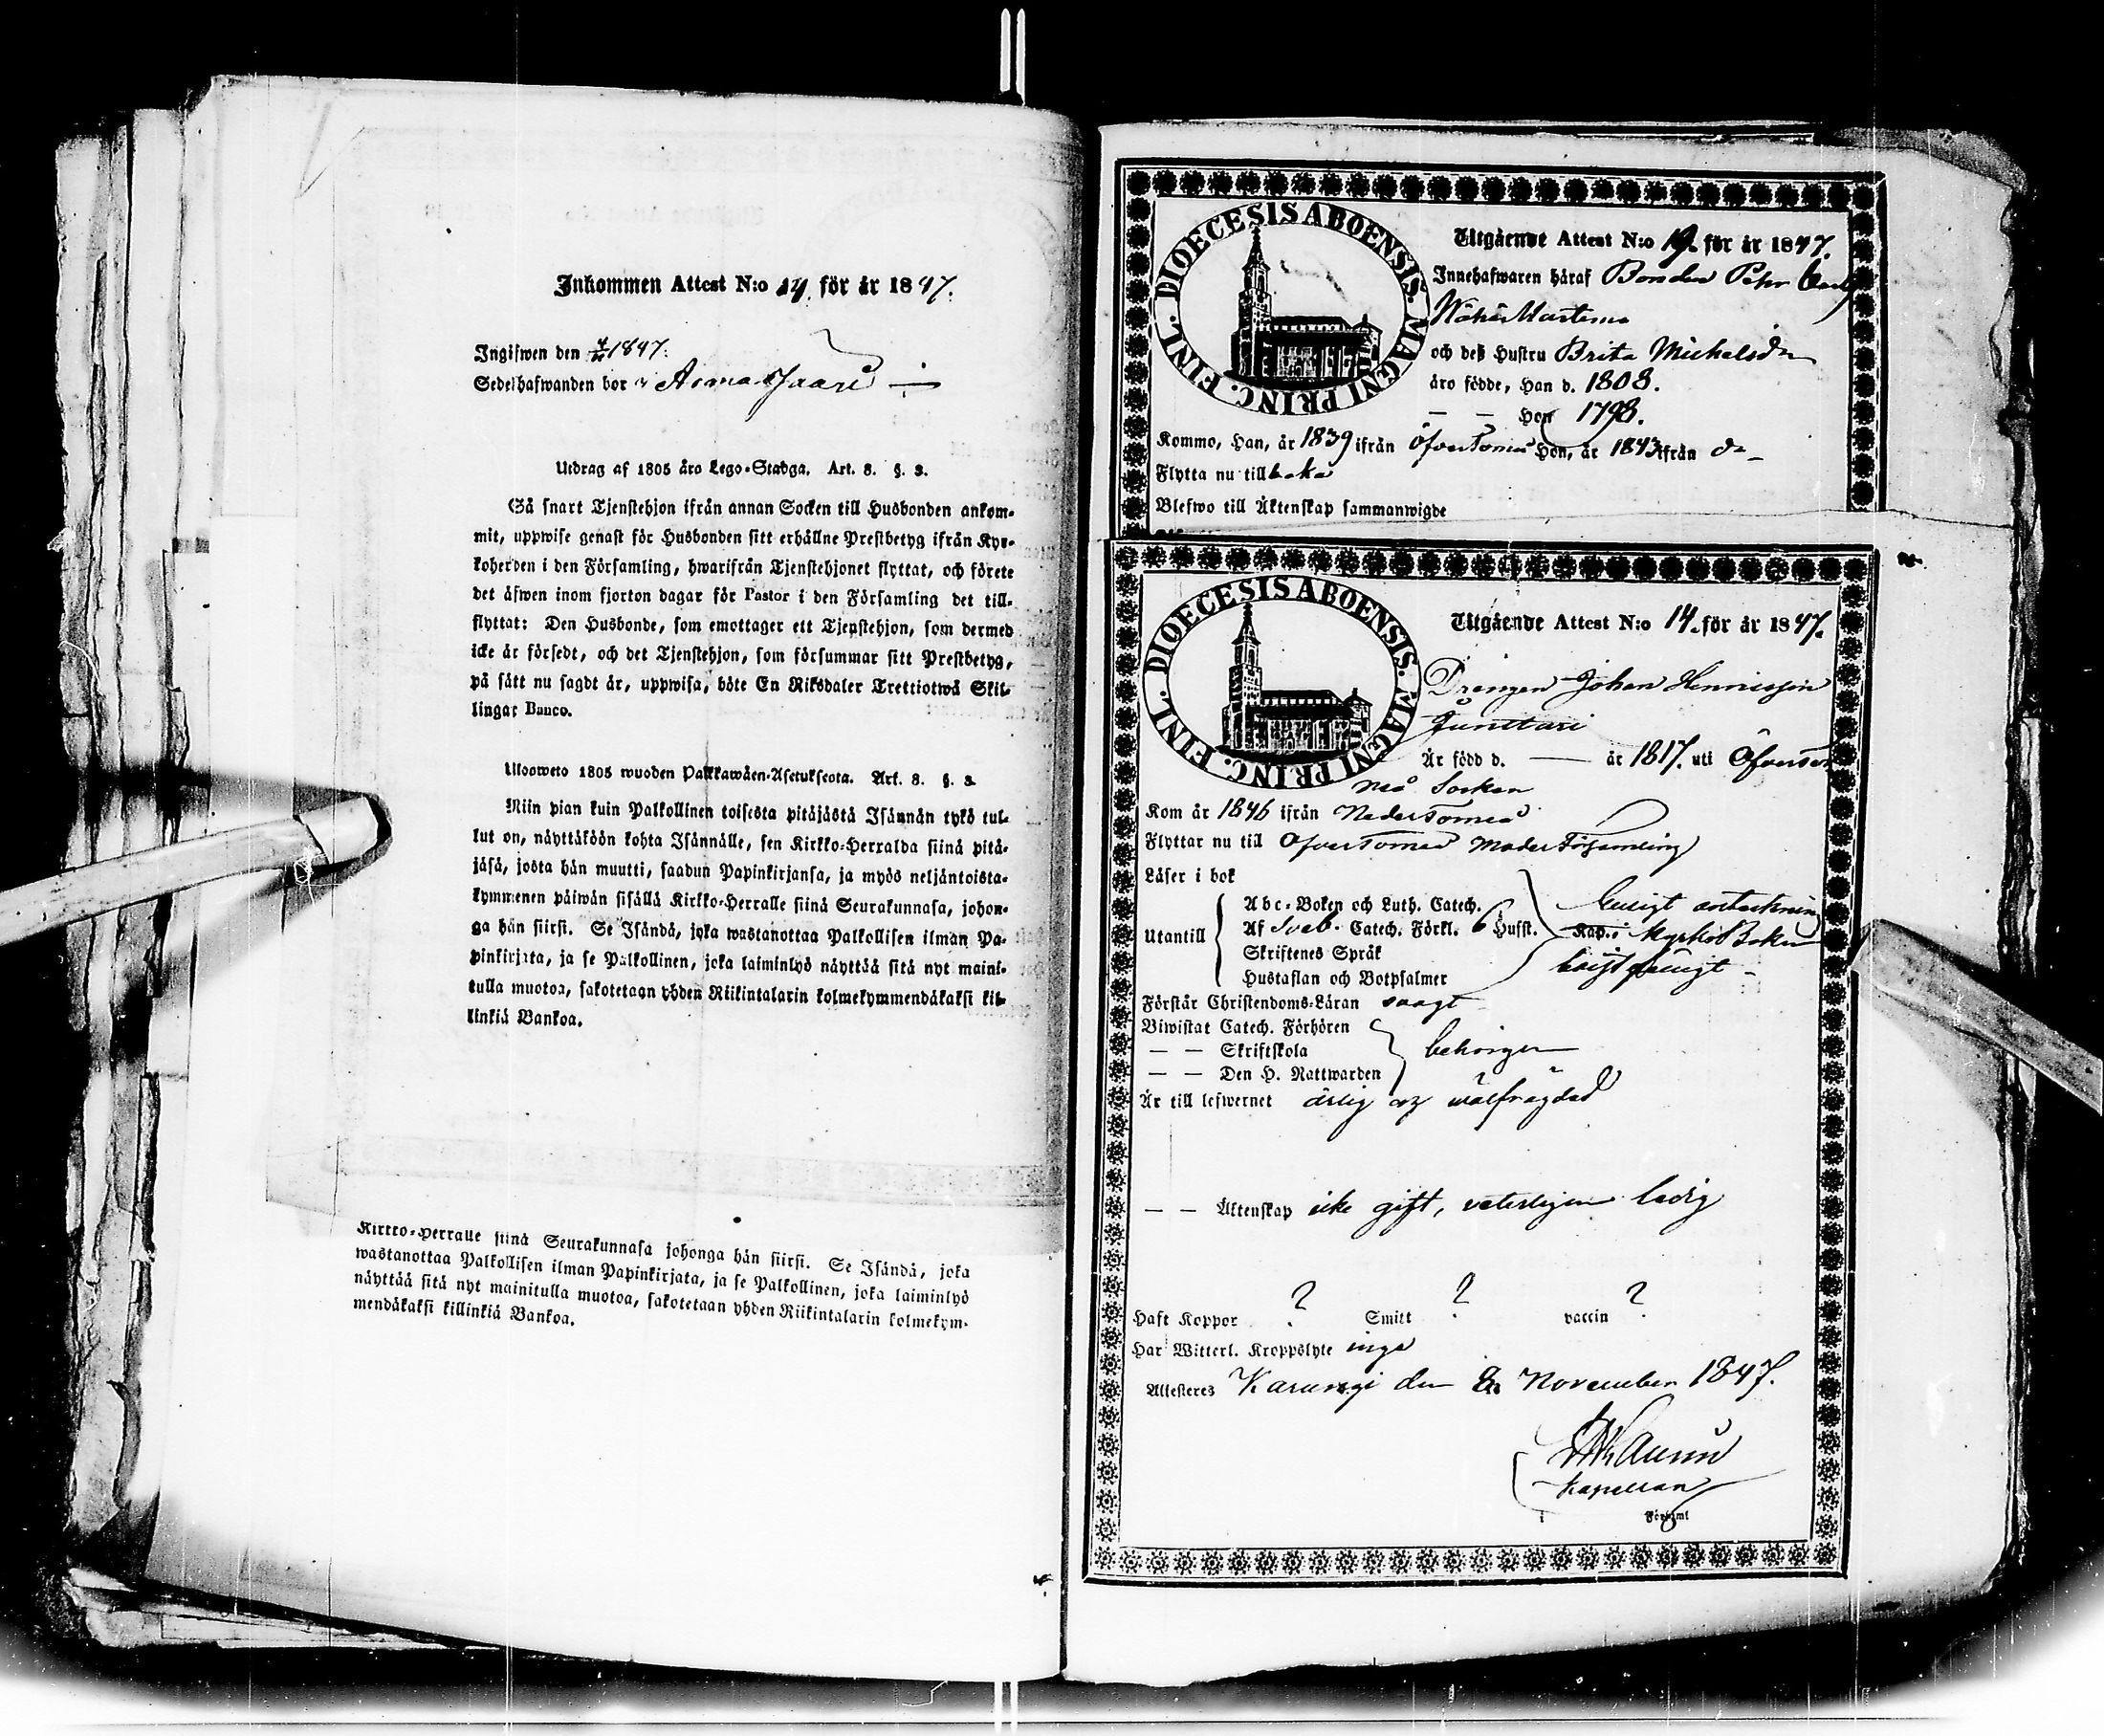 Inkommen Attest N:o 14. för år 1847.
Ingifwen den 1847.
Sedelhafwanden bor
Utdrag af 1805 års Lego-Stadga. Art. 8. §. 3.
Så snart Tjenstehjon ifrån annan Socken till Husbonden ankom-
mit, uppwise genast för Husbonden sitt erhållne Prestbetyg ifrån Kyr-
koherden i den Församling, hwarifrån Tjenstehjonet flyttat, och förete
det äfwen inom fjorton dagar för Pastor i den Församling det till-
flyttat: Den Husbonde, som emottager ett Tjenstehjon, som dermed
icke är försedt, och det Tjenstehjon, som försummar sitt Prestbetyg,
på sätt nu sagdt är, uppwisa, böte En Riksdaler Trettiotwå Skil-
lingar Banco.
Uloosweto 1805 wuoden Palkkawäen-Asetuksesta. Art. 8. §. 3.
Niin pian kuin Palkollinen toisesta pitäjästä Isännän tykö tul-
lut on, näyttäköön kohta Isännälle, sen Kirkko-Herralda siinä pitä-
jäsä, josta hän muutti, saadun Papinkirjansa, ja myös neljäntoista-
kymmenen päiwän sisällä Kirkko-Herralle siinä Seurakunnasa, johon-
ga hän siirsi. Se Isändä, joka wastanottaa Palkollisen ilman Pa-
pinkirjata, ja se Palkollinen, joka laiminlyö näyttää sitä nyt maini-
tulla muotoa, sakotetaan yhden Riikintalarin kolmekymmendäkaksi kil-
linkiä Bankoa.
Kirkko-Herralle siinä Seurakunnasa johonga hän siirsi. Se Isändä, joka
wastanottaa Palkollisen ilman Papinkirjata, ja se Palkollinen, joka laiminlyö
näyttää sitä nyt mainitulla muotoa, sakotetaan yhden Riikintalarin kolmekym-
mendäkaksi killinkiä Bankoa.
DIOECESIS ABOENSIS. MAGNI PRINC. FINL.
Utgående Attest N:o 19. för år 1847.
Innehafwaren häraf Bonden Pehr
och deß Hustru Brita Michelsdr
äro födde, Han d. 1808.
— — Hon 1798.
Kommo, Han, år 1839 ifrån ÖfverTorneå Hon, år 1843 ifrån do
Flytta nu tillbaka
Blefwo till Äktenskap sammanwigde
DIOECESIS ABOENSIS. MAGNI PRINC. FINL.
Utgående Attest N:o 14. för år 1847.
Drengen Johan Henricsson
Junttari
Är född d. — år 1817. uti Öfvertor
neå Socken
Kom år 1846 ifrån NederTorneå
Flyttar nu till ÖfverTorneå Moder Församling
Läser i bok
Utantill
Abc-Boken och Luth. Catech.
Af Sveb. Catech. Förkl. 6 Hufst. Kap. i KyrkoBoken
Skriftenes Språk
Hustaflan och Botpsalmer
Enligt anteckning
Förstår Christendoms-Läran svagt
Biwistat Catech. Förhören
— — Skriftskola behörigen
— — Den H. Nattwarden
Är till lefwernet ärlig och wälfrägdad
— — Äktenskap icke gift, veterligen ledig
Haft Koppor ? Smitt ? vaccin ?
Har Witterl. Kroppslyte inga
Attesteres Karungi den 8 November 1847.
Kapellan
i Församl